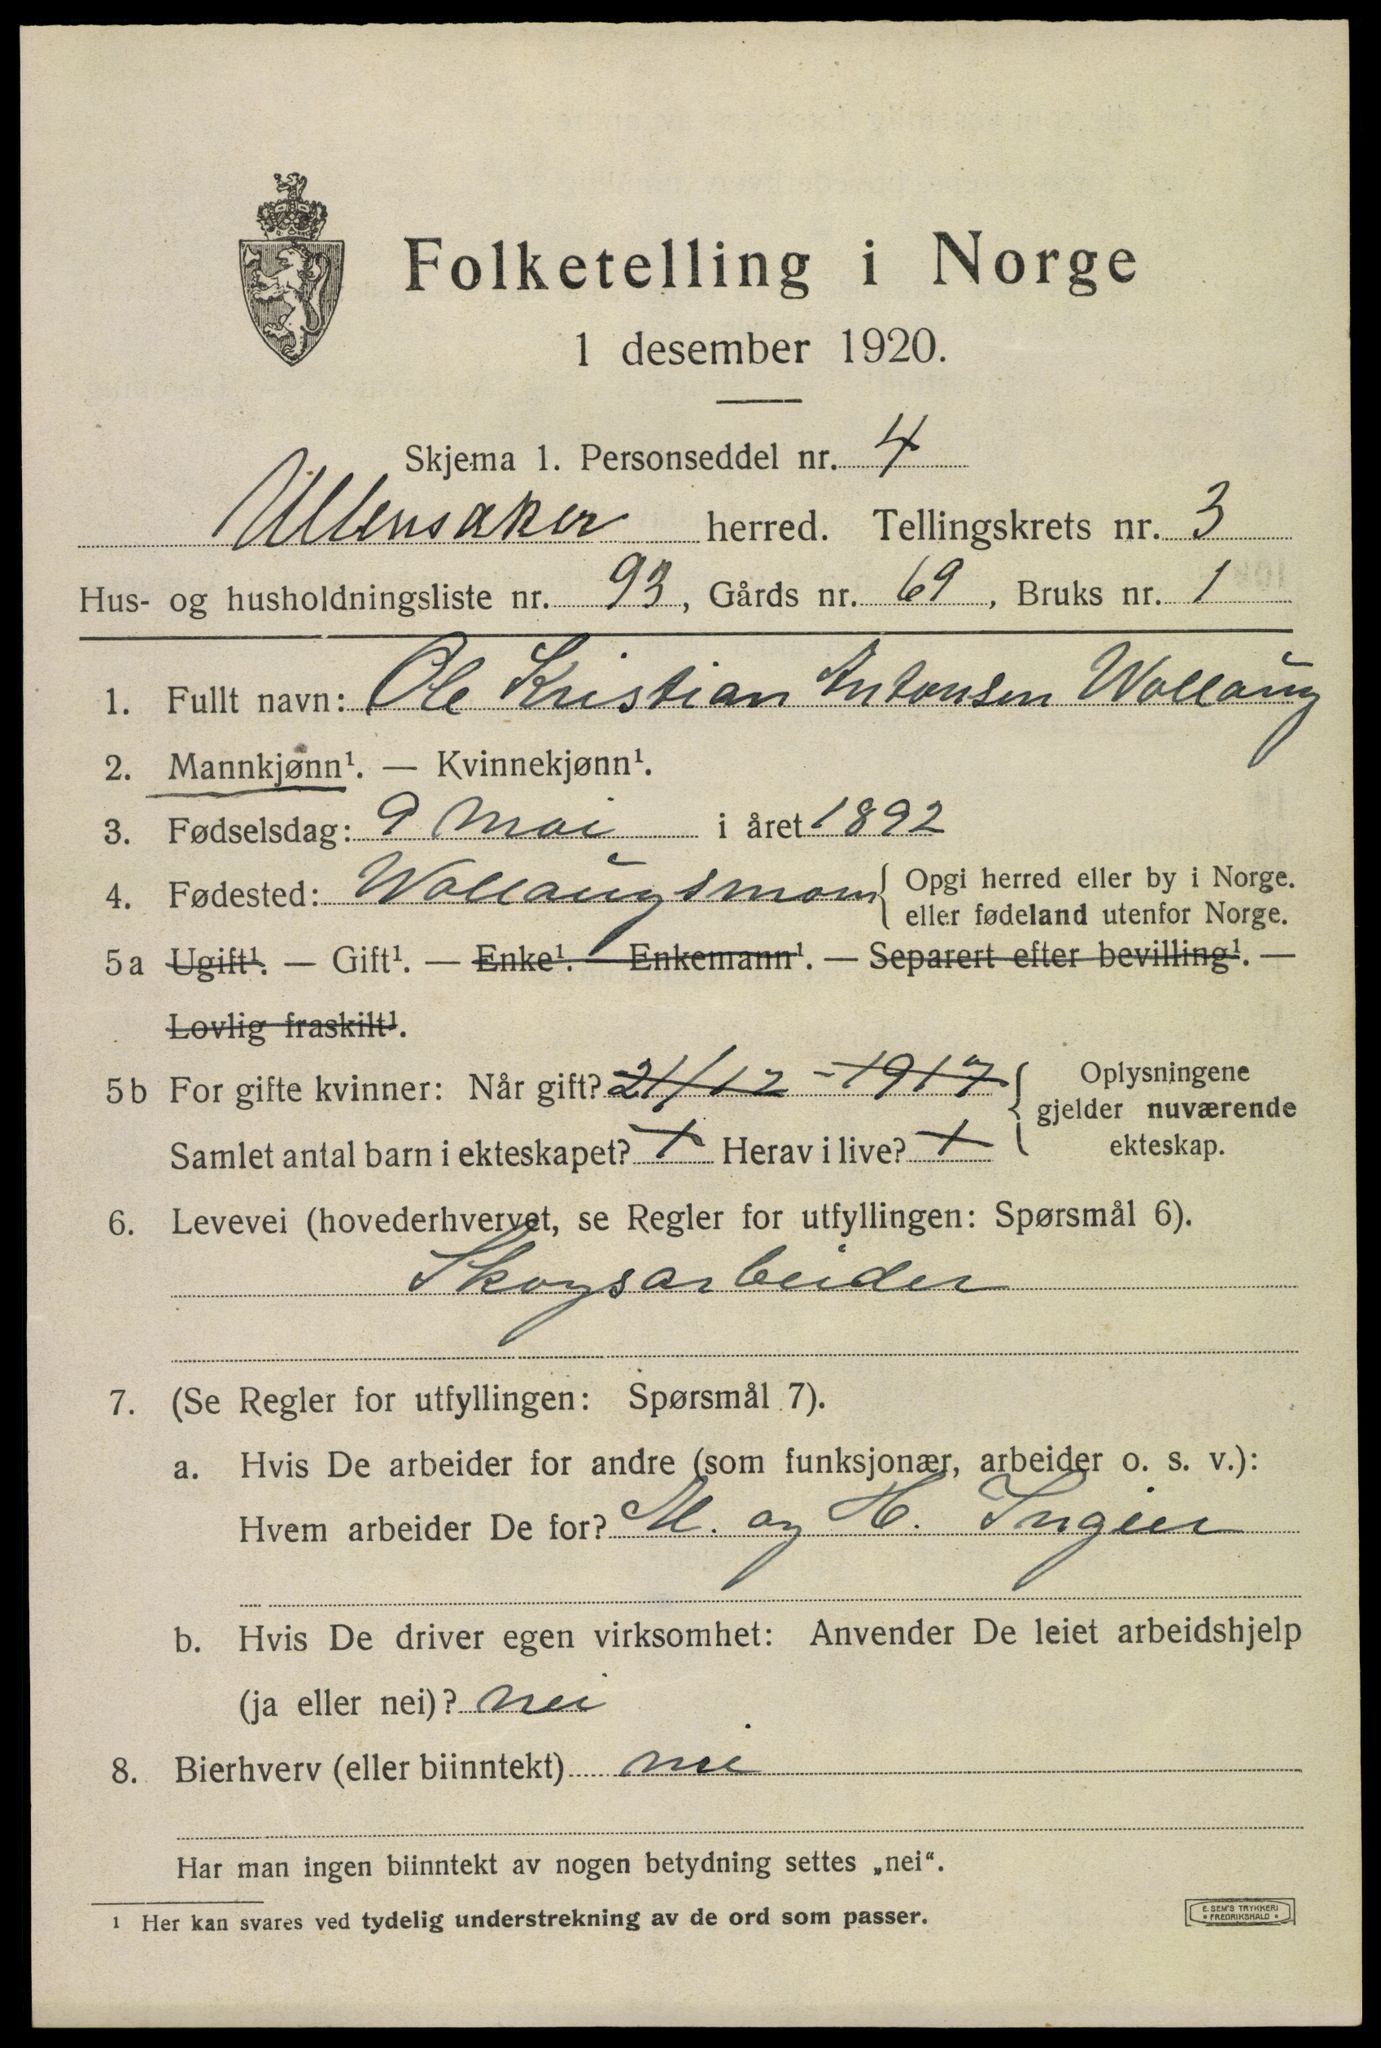 Folketelling i Norge
1 desember 1920.
Skjema 1. Personseddel nr. 4
Ullensaker herred. Tellingskrets nr. 3
Hus- og husholdningsliste nr. 93, Gårds nr. 69, Bruks nr. 1
1. Fullt navn: Ole Kristian Antonsen Wollaug
2. Mannkjønn¹. — Kvinnekjønn¹.
3. Fødselsdag: 9 Mai i året 1892
4. Fødested: Wollaugsmoen { Opgi herred eller by i Norge.
eller fødeland utenfor Norge.
5a Ugift¹. — Gift¹. — Enke¹. — Enkemann¹. — Separert efter bevilling¹. —
Lovlig fraskilt¹.
5b For gifte kvinner: Når gift? 21/12 - 1917 { Oplysningene
gjelder nuværende
ekteskap.
Samlet antal barn i ekteskapet? + Herav i live? +
6. Levevei (hovederhvervet, se Regler for utfyllingen: Spørsmål 6).
Skogsarbeider
7. (Se Regler for utfyllingen: Spørsmål 7).
a. Hvis De arbeider for andre (som funksjonær, arbeider o. s. v.):
Hvem arbeider De for? M. og H. Ingier
b. Hvis De driver egen virksomhet: Anvender De leiet arbeidshjelp
(ja eller nei)? nei
8. Bierhverv (eller biinntekt) nei
Har man ingen biinntekt av nogen betydning settes „nei“.
¹ Her kan svares ved tydelig understrekning av de ord som passer.
E. SEM'S TRYKKERI
* FREDRIKSHALD *